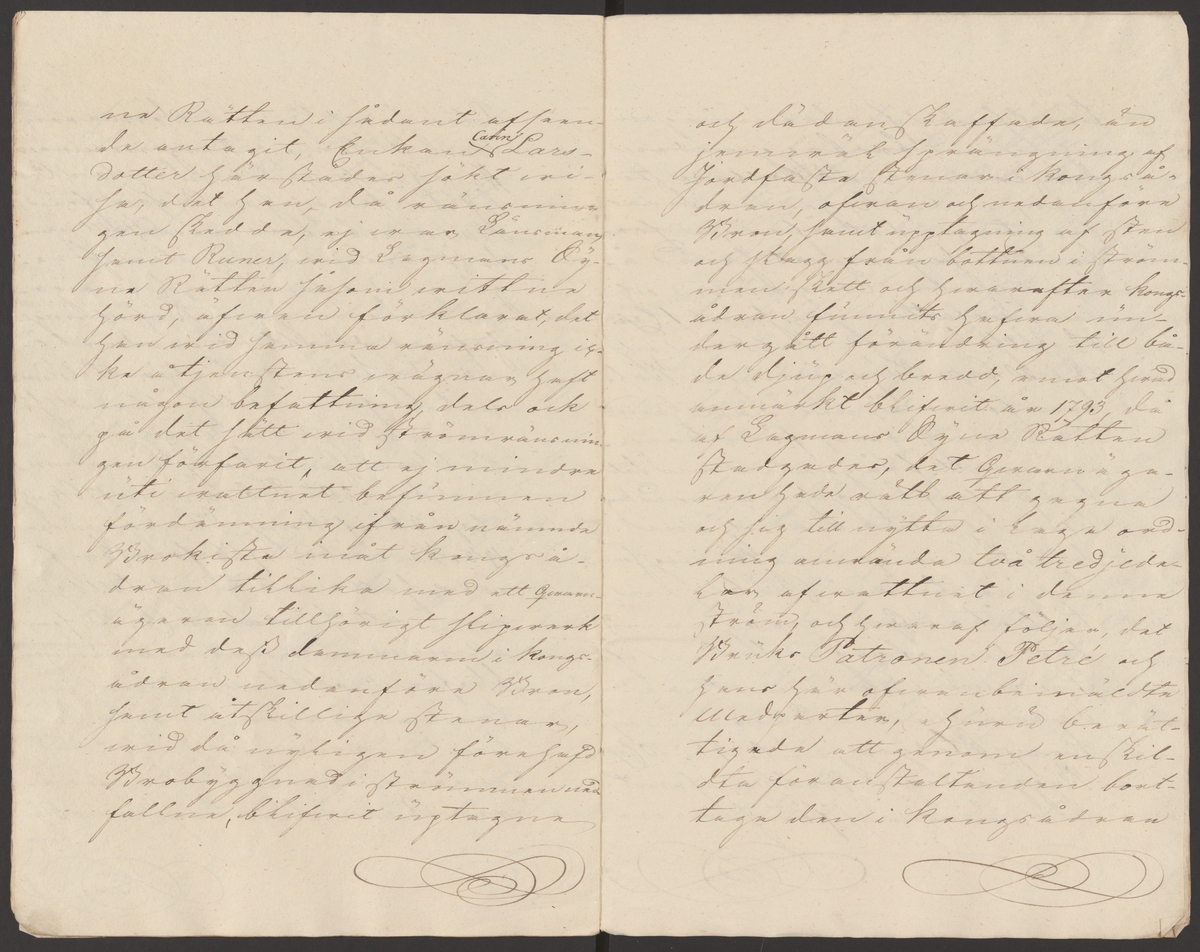 ne Rätten i sådant afseen-
de antagit, Enkan Carin Lars-
dotter här städes sökt vi-
sa, det han, då ränsnin-
gen skedde, ej var Länsman
samt Runer, vid Lagmans Sy-
ne Rätten såsom vittne
hörd, äfven förklarat, det
han vid samma ränsning ic-
ke å tjenstens vägnar haft
någon befattning, dels ock
på det sätt vid strömränsnin-
gen förfarit, att ej mindre
uti vattnet befinnen
fördämning ifrån nämnde
Brokista inåt kongså-
dran tillika med ett Qvarn-
ägeren tillhörigt slipverk
med dess dammarm i kongs-
ådran nedanföre Bron,
samt åtskillige stenar,
vid då nyligen förehafd
Brobyggnad i strömmen ned-
fallne, blifvit uptagne
och dädan skaffade, än
jemväl sprängning af
Jordfasta stenar i kongså-
dran, ofvan och nedanföre
Bron, samt upptagning af sten
och slagg från bottnen i ström-
men skett och hvarefter kongs-
ådran funnits hafva un-
dergått förändring till bå-
de djup och bredd, emot hvad
anmärkt blifvit år 1793, då
af Lagmans Syne Rätten
stadgades, det Qvarnäga-
ren hade rätt att gagna
och sig till nytta i laga ord-
ning använda två tredjede-
lar af vattnet i denne
ström, och hvaraf följer, det
Bruks Patronen Petré och
hans här ofvanbemäldte
Medparter, ehuru berät-
tigade att genom enskil-
dta föranstaltanden bort-
taga den i kongsådran